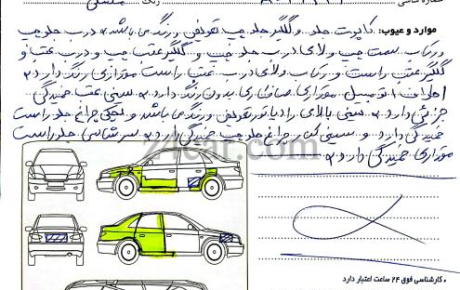 موارد و عیوب: کاپوت جلو و گلگیر جلو چپ تعویض و رنگ می باشد، درب جلو چپ
و رکاب سمت چپ و لای درب جلو چپ و گلگیر عقب چپ و درب عقب و
گلگیر عقب راست و رکاب و لای درب عقب راست مقداری رنگ دارد،
اطراف اتومبیل مقداری صافکاری بدون رنگ دارد، سینی عقب خمیدگی
جزئی دارد، سینی بالای رادیاتور تعویض و رنگ می باشد و چراغ جلو راست
خمیدگی دارد و سینی کنار چراغ جلو چپ خمیدگی دارد، سرشاسی جلو راست
مقداری خمیدگی دارد،
car.com
• کارشناسی فوق ۲۴ ساعت اعتبار دارد